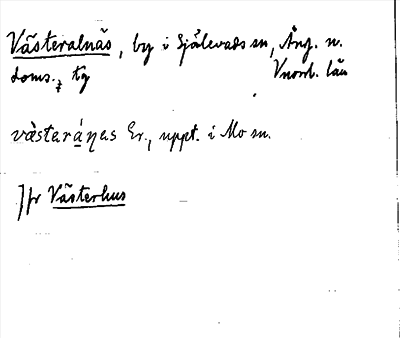 Västeralnäs, by i Själevads sn, Ång. n.
doms., tg Vnorrl. län
västaráṇas Er., uppt. i Mo sn.
Jfr Västerhus